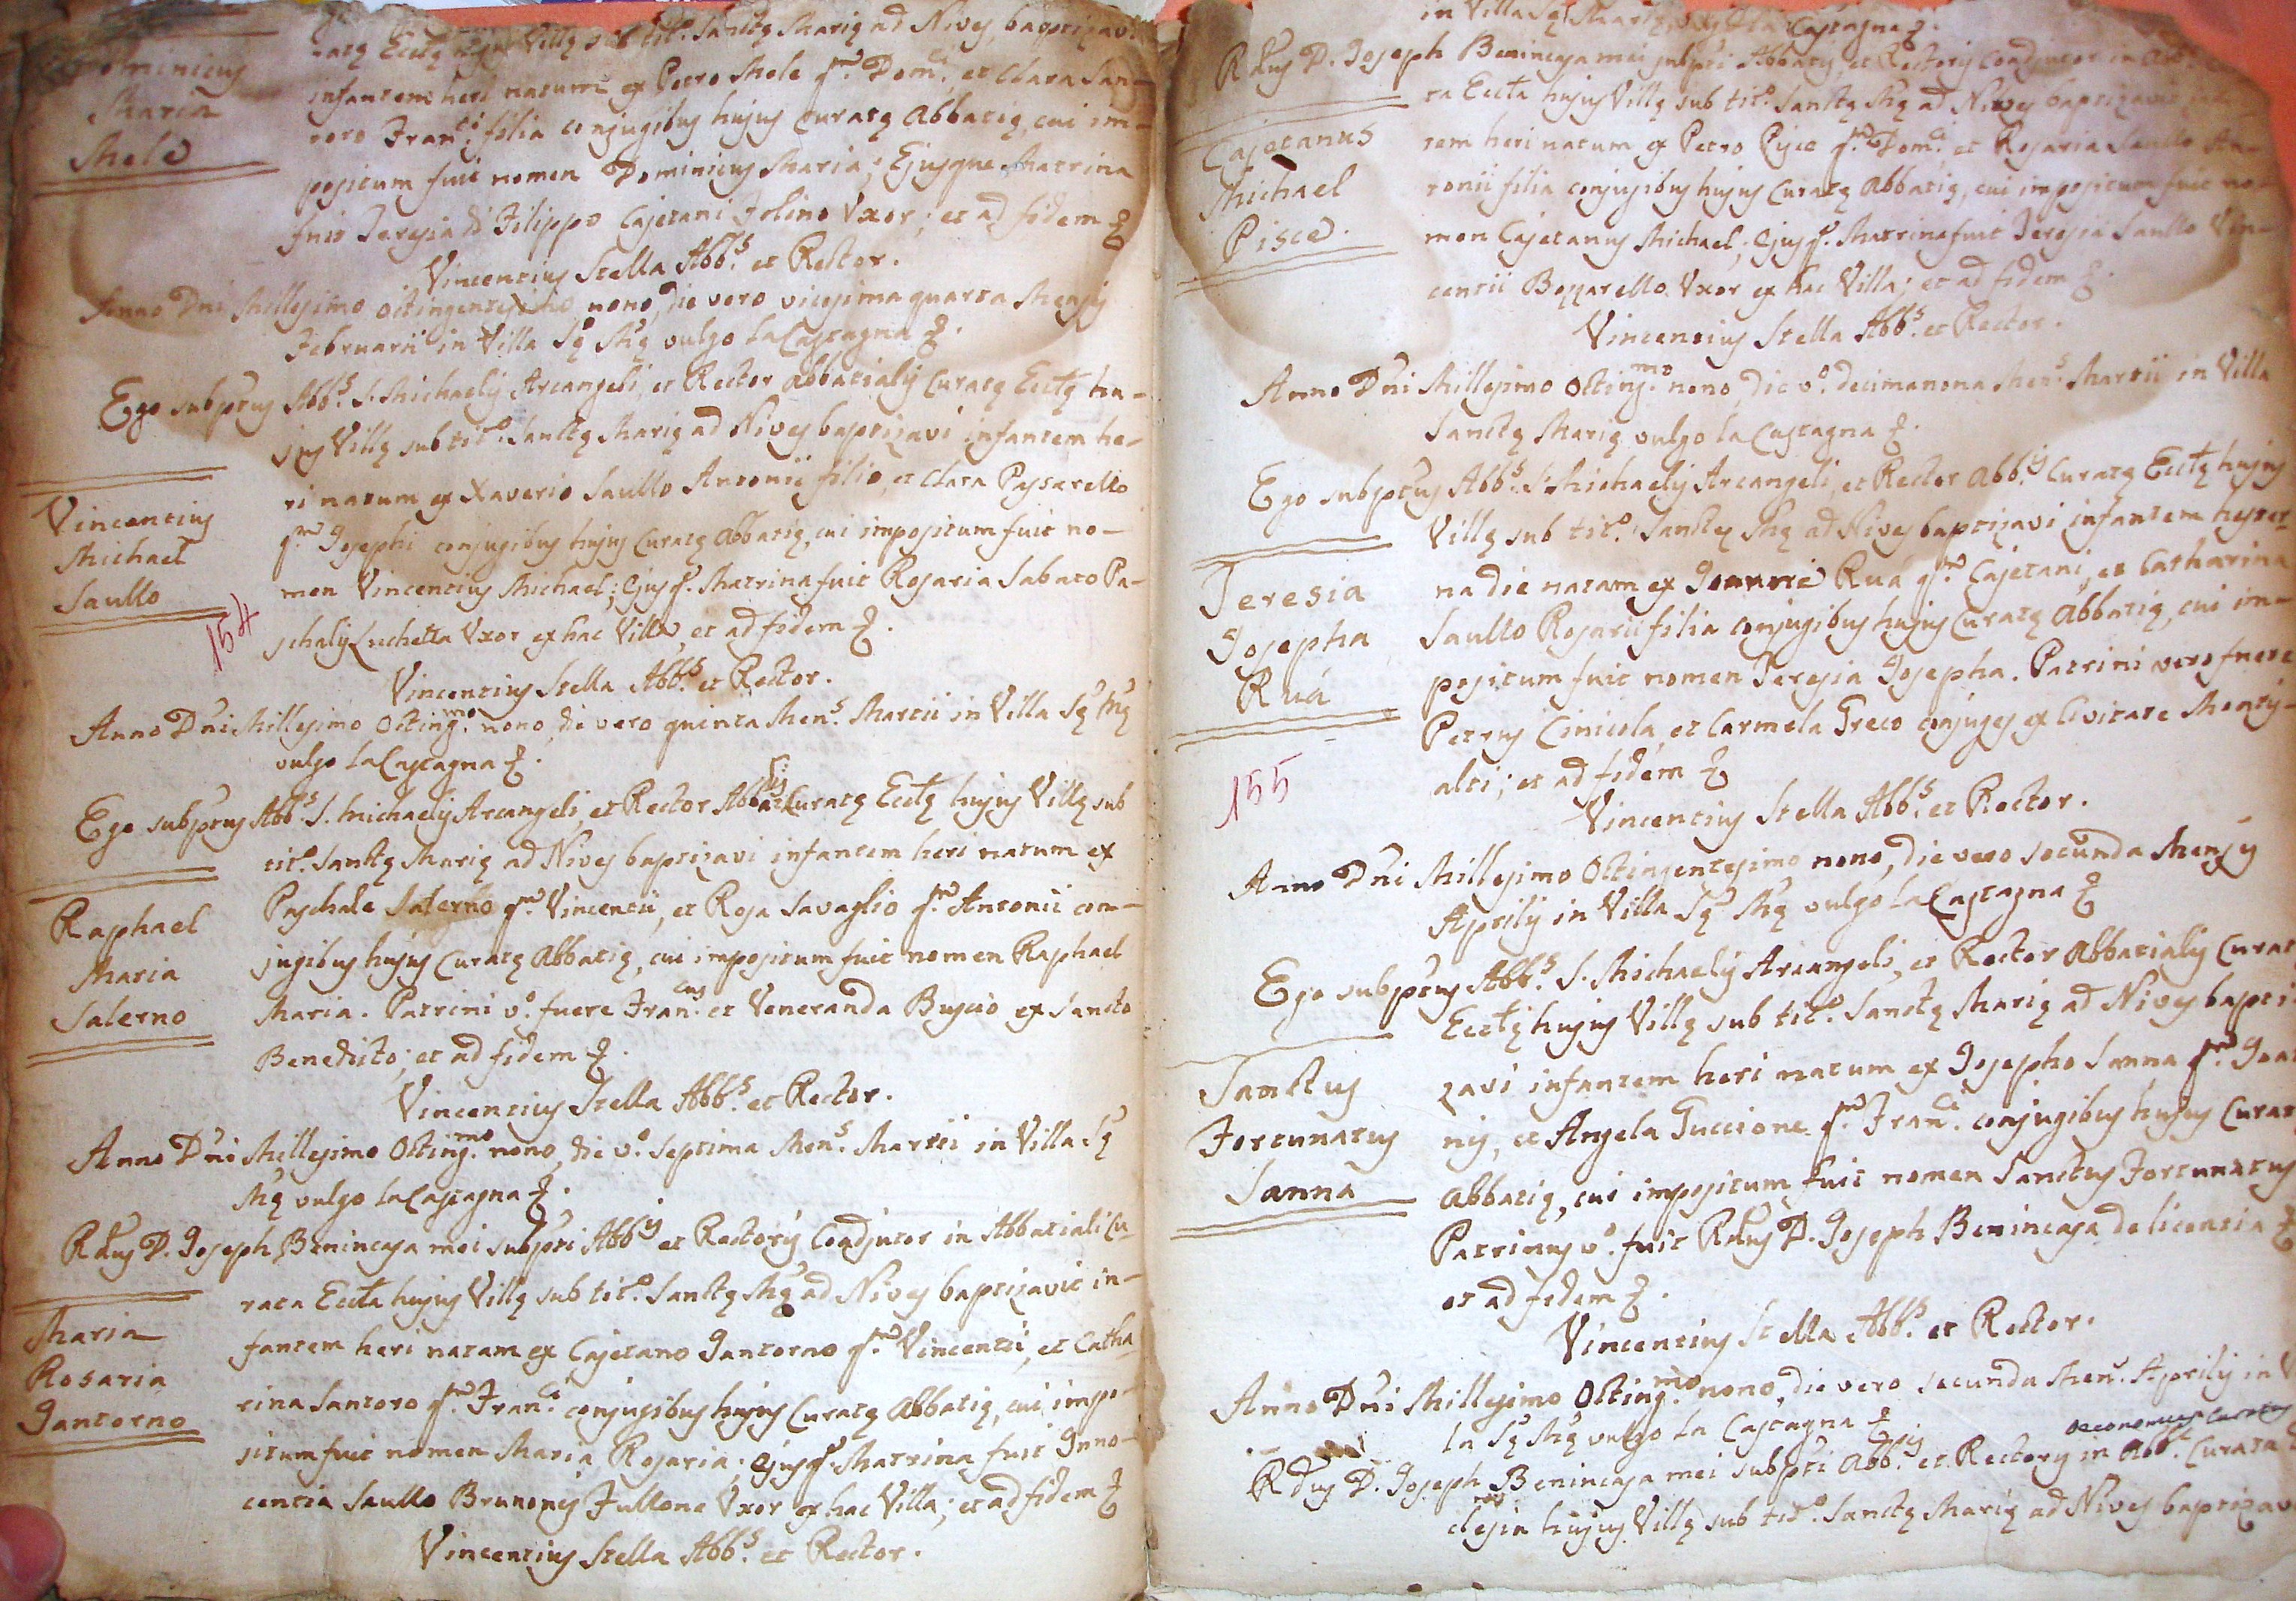 ratę Ecctę hujus Villę sub tit.º Sanctę Marię ad Nives, baptizavi
Dominicus
Maria
Mele
infantem heri natum ex Petro Mele q.m Dom.ci, et Clara San-
toro Fran.ci filia conjugibus hujus Curatę Abbatię, cui im-
positum fuit nomen Dominicus Maria; Ejusque Matrina
fuit Teresia di Filippo Cajetani Iolino Uxor; et ad fidem &
Vincentius Stella Abb.s et Rector.
Anno Dni Millesimo octingentesimo nono, die vero vicesima quarta Mensis
Februarii in Villa Sę Mę vulgo la Castagna &.
Ego subptus Abb.s S. Michaelis Arcangeli, et Rector Abbatialis Curatę Ecctę hu-
jus Villę sub tit.º Sanctę Marię ad Nives baptizavi infantem he-
Vincentius
Michael
Saullo
154
ri natum ex Xaverio Saullo Antonii filio, et Clara Passarello
q.m Josephi conjugibus hujus Curatę Abbatię, cui impositum fuit no-
men Vincentius Michael; Ejusq. Matrina fuit Rosaria Sabato Pa-
schalis Luchetta Uxor ex hac Villa, et ad fidem &.
Vincentius Stella Abb.s et Rector.
Anno Dni Millesimo Octing.mo nono, die vero quinta Men.s Martii in Villa Sę Mę
vulgo la Castagna &.
Ego subptus Abb.s S. Michaelis Arcangeli, et Rector Abbatlis Curatę Ecctę hujus Villę sub
tit.º Sanctę Marię ad Nives baptizavi infantem heri natum ex
Raphael
Maria
Salerno
Paschale Salerno q.m Vincentii, et Rosa Savaglio q.m Antonii con-
jugibus hujus Curatę Abbatię, cui impositum fuit nomen Raphael
Maria. Patrini v.º fuere Fran.cus et Veneranda Buscio ex Sancto
Benedicto; et ad fidem &.
Vincentius Stella Abb.s et Rector.
Anno Dni Millesimo Octing.mo nono, die v.º septima Men.s Martii in Villa Sę
Mę vulgo la Castagna &.
Rdus D. Joseph Benincasa mei subpti Abb.is et Rectoris Coadjutor in Abbatiali Cu-
rata Eccta hujus Villę sub tit.º Sanctę Mę ad Nives baptizavit in-
Maria
Rosaria
Jantorno
fantem heri natam ex Cajetano Jantorno q.m Vincentii, et Catha
rina Santoro q.m Fran.ci conjugibus hujus Curatę Abbatię, cui impo-
situm fuit nomen Maria Rosaria; Ejusq. Matrina fuit Inno-
centia Saullo Brunonis Fullone Uxor ex hac Villa; et ad fidem &
Vincentius Stella Abb.s et Rector.
in Villa Sę Marię vulgo la Castagna &.
Rdus D. Joseph Benincasa mei subpti Abbatis, et Rectoris Coadjutor in
ta Eccta hujus Villę sub tit.º Sanctę Mę ad Nives baptizavit
Cajetanus
Michael
Pisce.
tem heri natum ex Petro Pisce q.m Dom.ci, et Rosaria Saullo An-
tonii filia conjugibus hujus Curatę Abbatię, cui impositum fuit no-
men Cajetanus Michael; Ejusq. Matrina fuit Teresia Saullo Vin-
centii Bozzarello Uxor ex hac Villa; et ad fidem &.
Vincentius Stella Abb.s et Rector.
Anno Dni Millesimo Octing.mo nono, die v.º decimanona Men.s Martii in Villa
Sanctę Marię vulgo la Castagna &.
Ego subptus Abb.s S. Michaelis Arcangeli, et Rector Abb.is Curatę Ecctę hujus
Villę sub tit.º Sanctę Mę ad Nives baptizavi infantem hester-
Teresia
Josepha
Ruá
155
na die natam ex Ruá q.m Cajetani, et Catharina
Saullo Rosarii filia conjugibus hujus Curatę Abbatię, cui im-
positum fuit nomen Teresia Josepha. Patrini vero fuere
Petrus Cinicola, et Carmela Greco conjuges ex Civitate Montis-
alti; et ad fidem &
Vincentius Stella Abb.s et Rector.
Anno Dni Millesimo Octingentesimo nono, die vero secunda Mensis
Aprilis in Villa Sę Mę vulgo la Castagna &
Ego subptus Abb.s S. Michaelis Arcangeli, et Rector Abbatialis Curat
Ecctę hujus Villę sub tit.º Sanctę Marię ad Nives bapti
Sanctus
Fortunatus
Sanna
zavi infantem heri natum ex Josepho Sanna q.m Joan
nis, et Angela Guccione q.m Fran.ci conjugibus hujus Curat
Abbatię, cui impositum fuit nomen Sanctus Fortunatus
Patrinus v.º fuit Rdus D. Joseph Benincasa de licentia &
et ad fidem &.
Vincentius Stella Abb.s et Rector.
Anno Dni Millesimo Octing.mo nono, die vero secunda Men.s Aprilis in V
la Sę Mę vulgo la Castagna &
oeconomus Curatus
Rdus D. Joseph Benincasa mei subpti Abb.is et Rectoris in Abb. Curata
clesia hujus Villę sub tit.º Sanctę Marię ad Nives baptizav